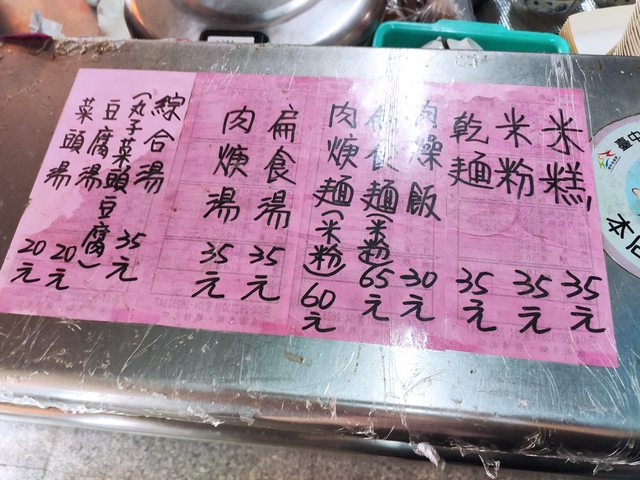 米糕 35元
米粉 35元
乾麵 35元
肉燥飯 30元
扁食麵(米粉) 65元
肉焿麵(米粉) 60元
扁食湯 35元
肉焿湯 35元
綜合湯 35元
(丸子菜頭豆腐)
豆腐湯 20元
菜頭湯 20元